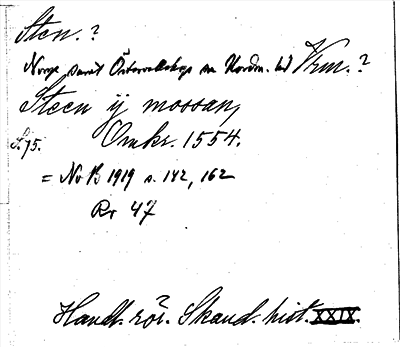 Sten. ?
Norge samt Östervallskog sn Nordm. hd Vrm. ?
Steen ij mossan,
S. 75. Omkr. 1554.
= NoB 1919 s. 142, 162
Rr 47
Handl. rör. Skand. hist. XXIX.